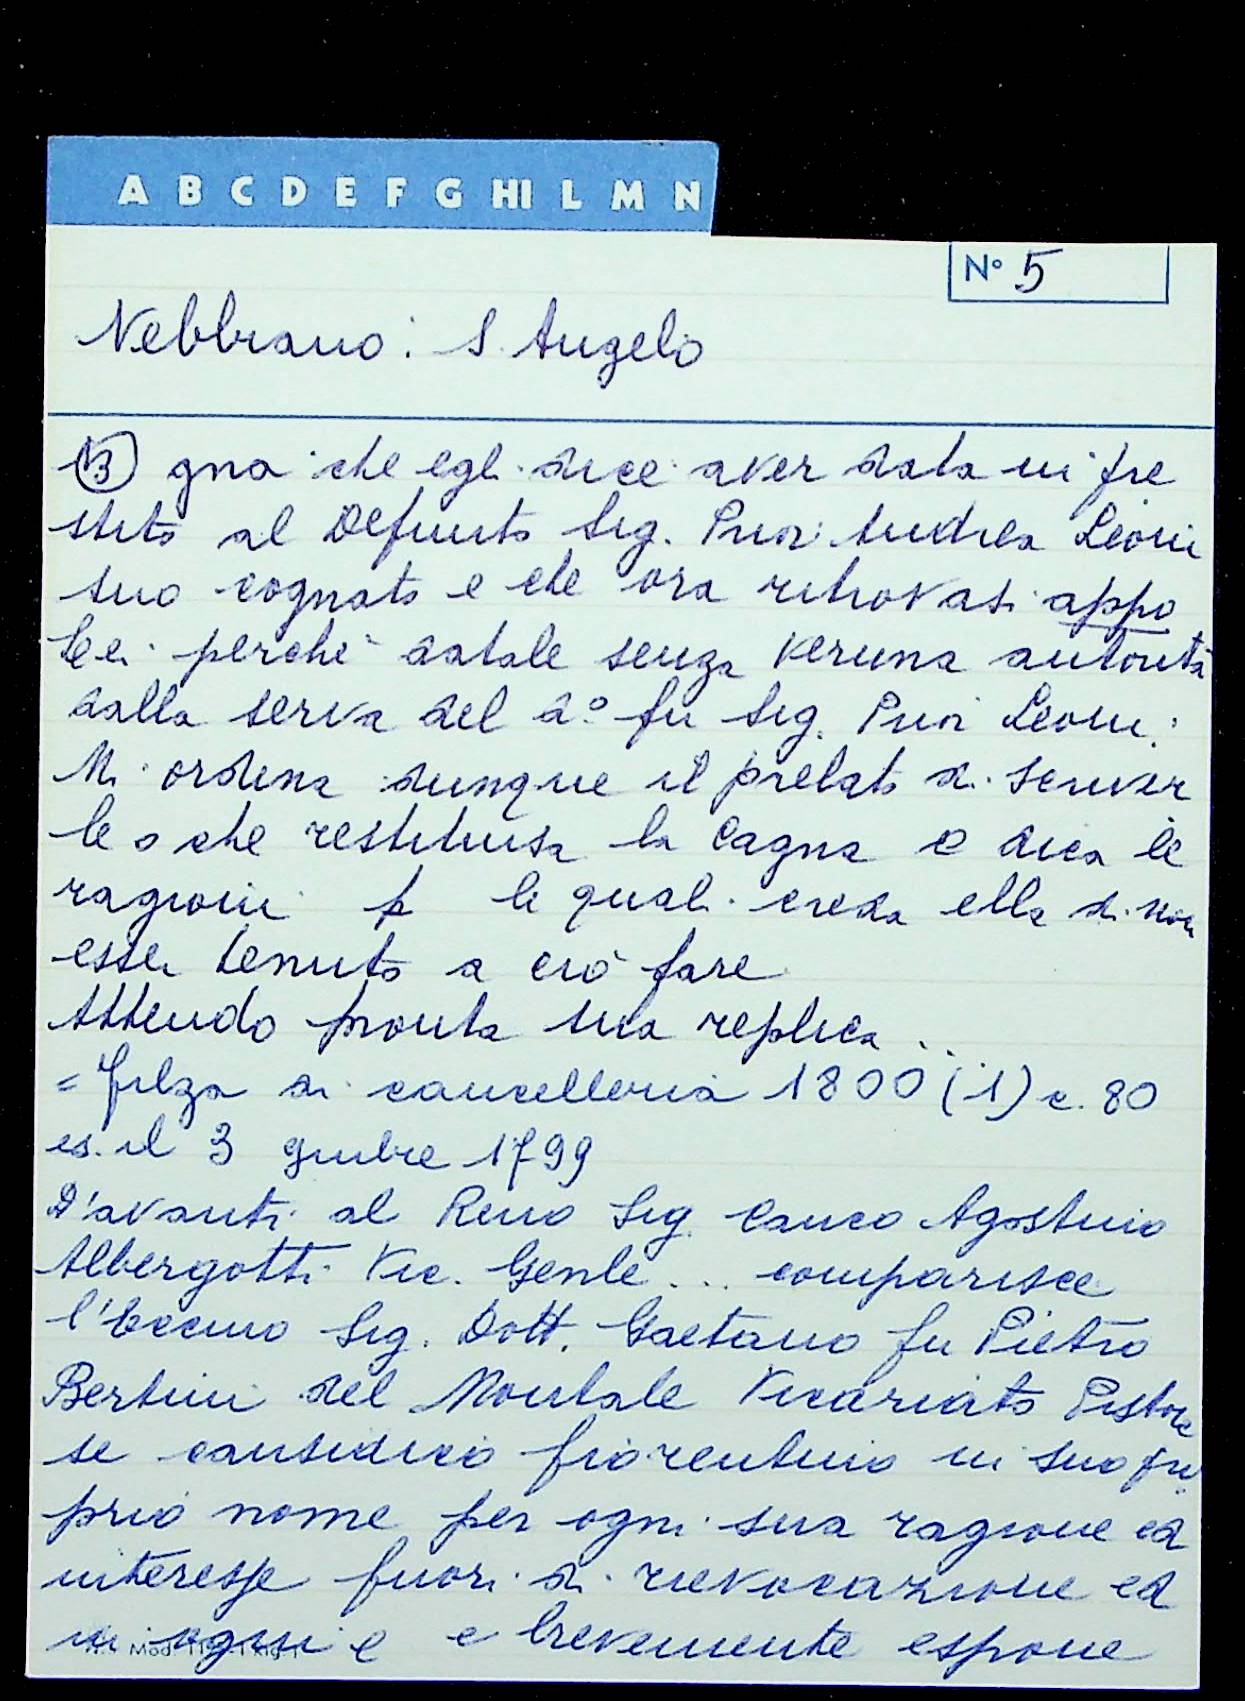 A B C D E F G HI L M N
N° 5
Nebbiano: S. Angelo
13 gna che egli dice aver data in pre
stito al Defunto Sig. Prior Andrea Leoni
suo cognato e che ora ritrovasi appo
Lei perché datale senza veruna autorità
dalla serva del d° fu Sig. Prior Leoni:
Mi ordina dunque il prelato di scriver
le o che restituisa la cagna o dica le
ragioni p le quali creda ella di non
esser tenuto a ciò fare
Attendo pronta sua replica ...
= filza di cancelleria 1800 (1) c. 80
es. il 3 gnbre 1799
D'avanti al Rmo Sig. Canco Agostino
Albergotti Vic. Genle ... comparisce
l'Eccmo Sig. Dott. Gaetano fu Pietro
Bertini del Montale Vicariato Pistoie
se causidico fiorentino in suo pro
prio nome per ogni sua ragione ed
interesse fuori di rievocazione ed
e brevemente espone